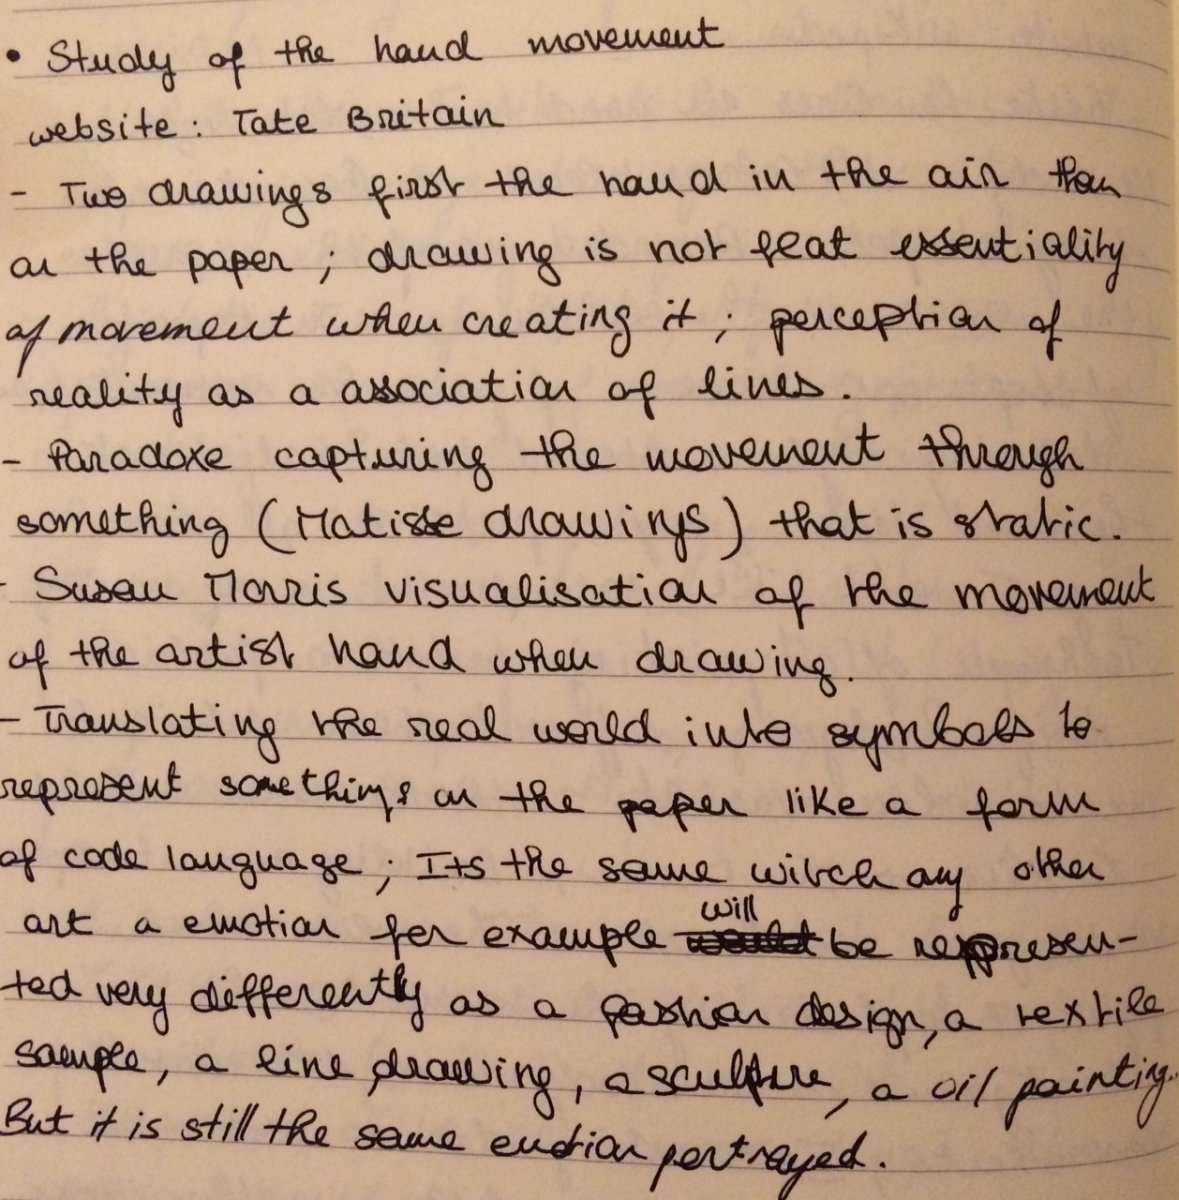 • Study of the hand movement
website : Tate Britain
- Two drawings first the hand in the air then
on the paper ; drawing is not feat essentiality
of movement when creating it ; perception of
reality as a association of lines.
- Paradoxe capturing the movement through
something (Matisse drawings) that is static.
- Susan Morris visualisation of the movement
of the artist hand when drawing.
- Translating the real world into symbols to
represent somethings on the paper like a form
of code language ; Its the same witch any other
art a emotion for example will be represen-
ted very differently as a fashion design, a textile
sample, a line drawing, a sculpture, a oil painting.
But it is still the same emotion portrayed.